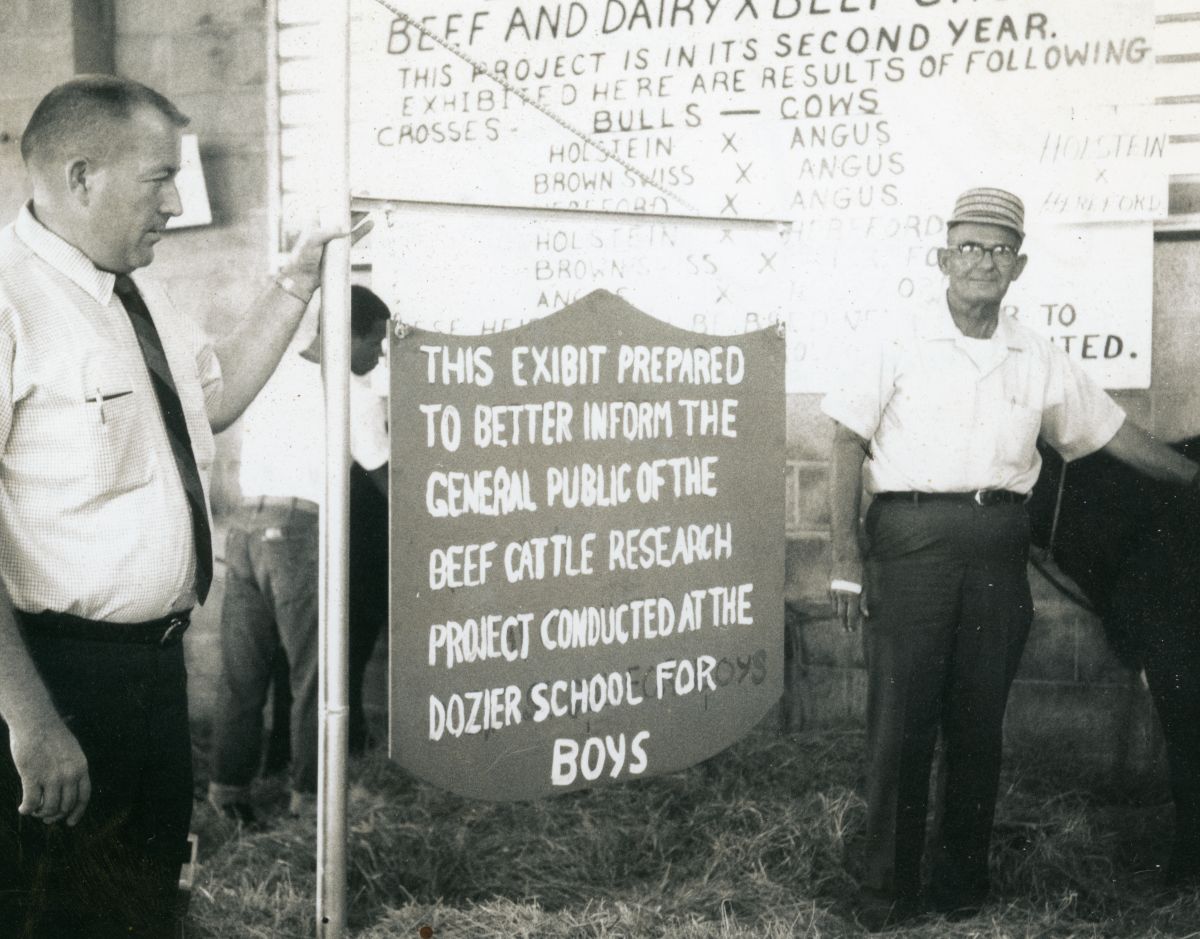 BEEF AND DAIRY X BEEF
THIS PROJECT IS IN ITS SECOND YEAR.
EXHIBITED HERE ARE RESULTS OF FOLLOWING
CROSSES - BULLS — COWS
HOLSTEIN X ANGUS
BROWN SWISS X ANGUS
HEREFORD X ANGUS
HOLSTEIN X HEREFORD
BROWN SWISS X
X
TO
HOLSTEIN
X
HEREFORD
THIS EXIBIT PREPARED
TO BETTER INFORM THE
GENERAL PUBLIC OF THE
BEEF CATTLE RESEARCH
PROJECT CONDUCTED AT THE
DOZIER SCHOOL FOR
BOYS